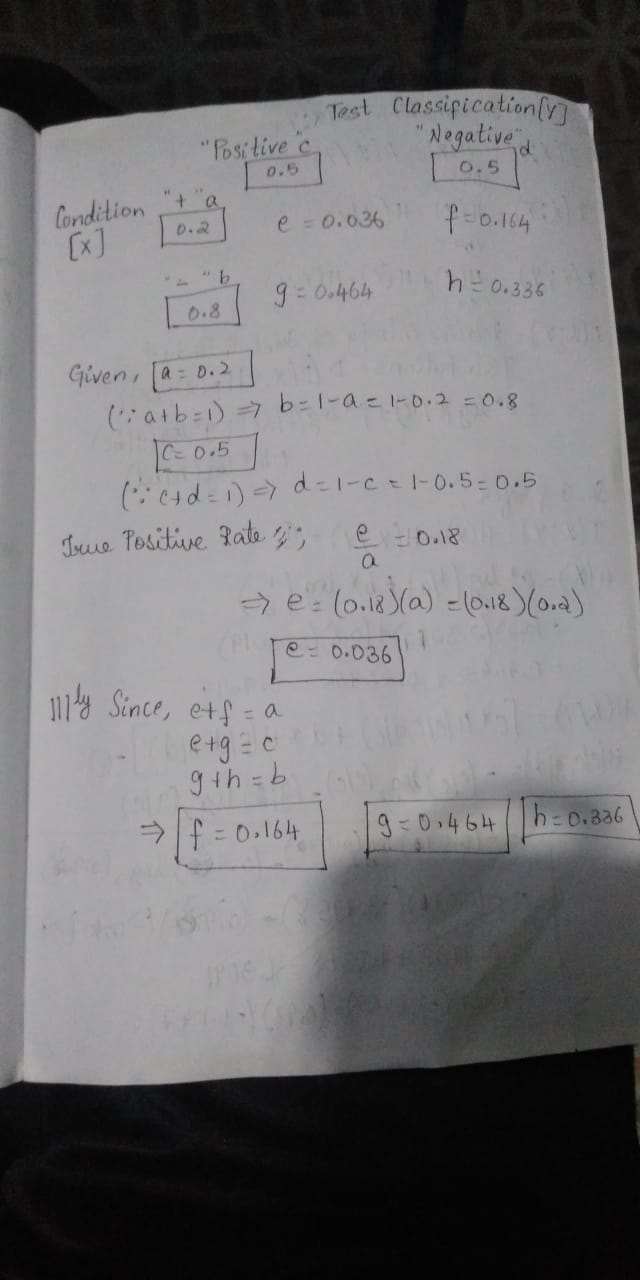 Test Classification[Y]
"Positive" c "Negative" d
0.5 0.5
Condition "+" a
[X] 0.2 e = 0.036 f = 0.164
"-" b
0.8 g = 0.464 h = 0.336
Given, a = 0.2
(∵ a+b=1) ⇒ b = 1-a = 1-0.2 = 0.8
C = 0.5
(∵ c+d=1) ⇒ d = 1-c = 1-0.5 = 0.5
True Positive Rate e/a = 0.18
⇒ e = (0.18)(a) = (0.18)(0.2)
e = 0.036
|||ly Since, e+f = a
e+g = c
g+h = b
⇒ f = 0.164 g = 0.464 h = 0.336